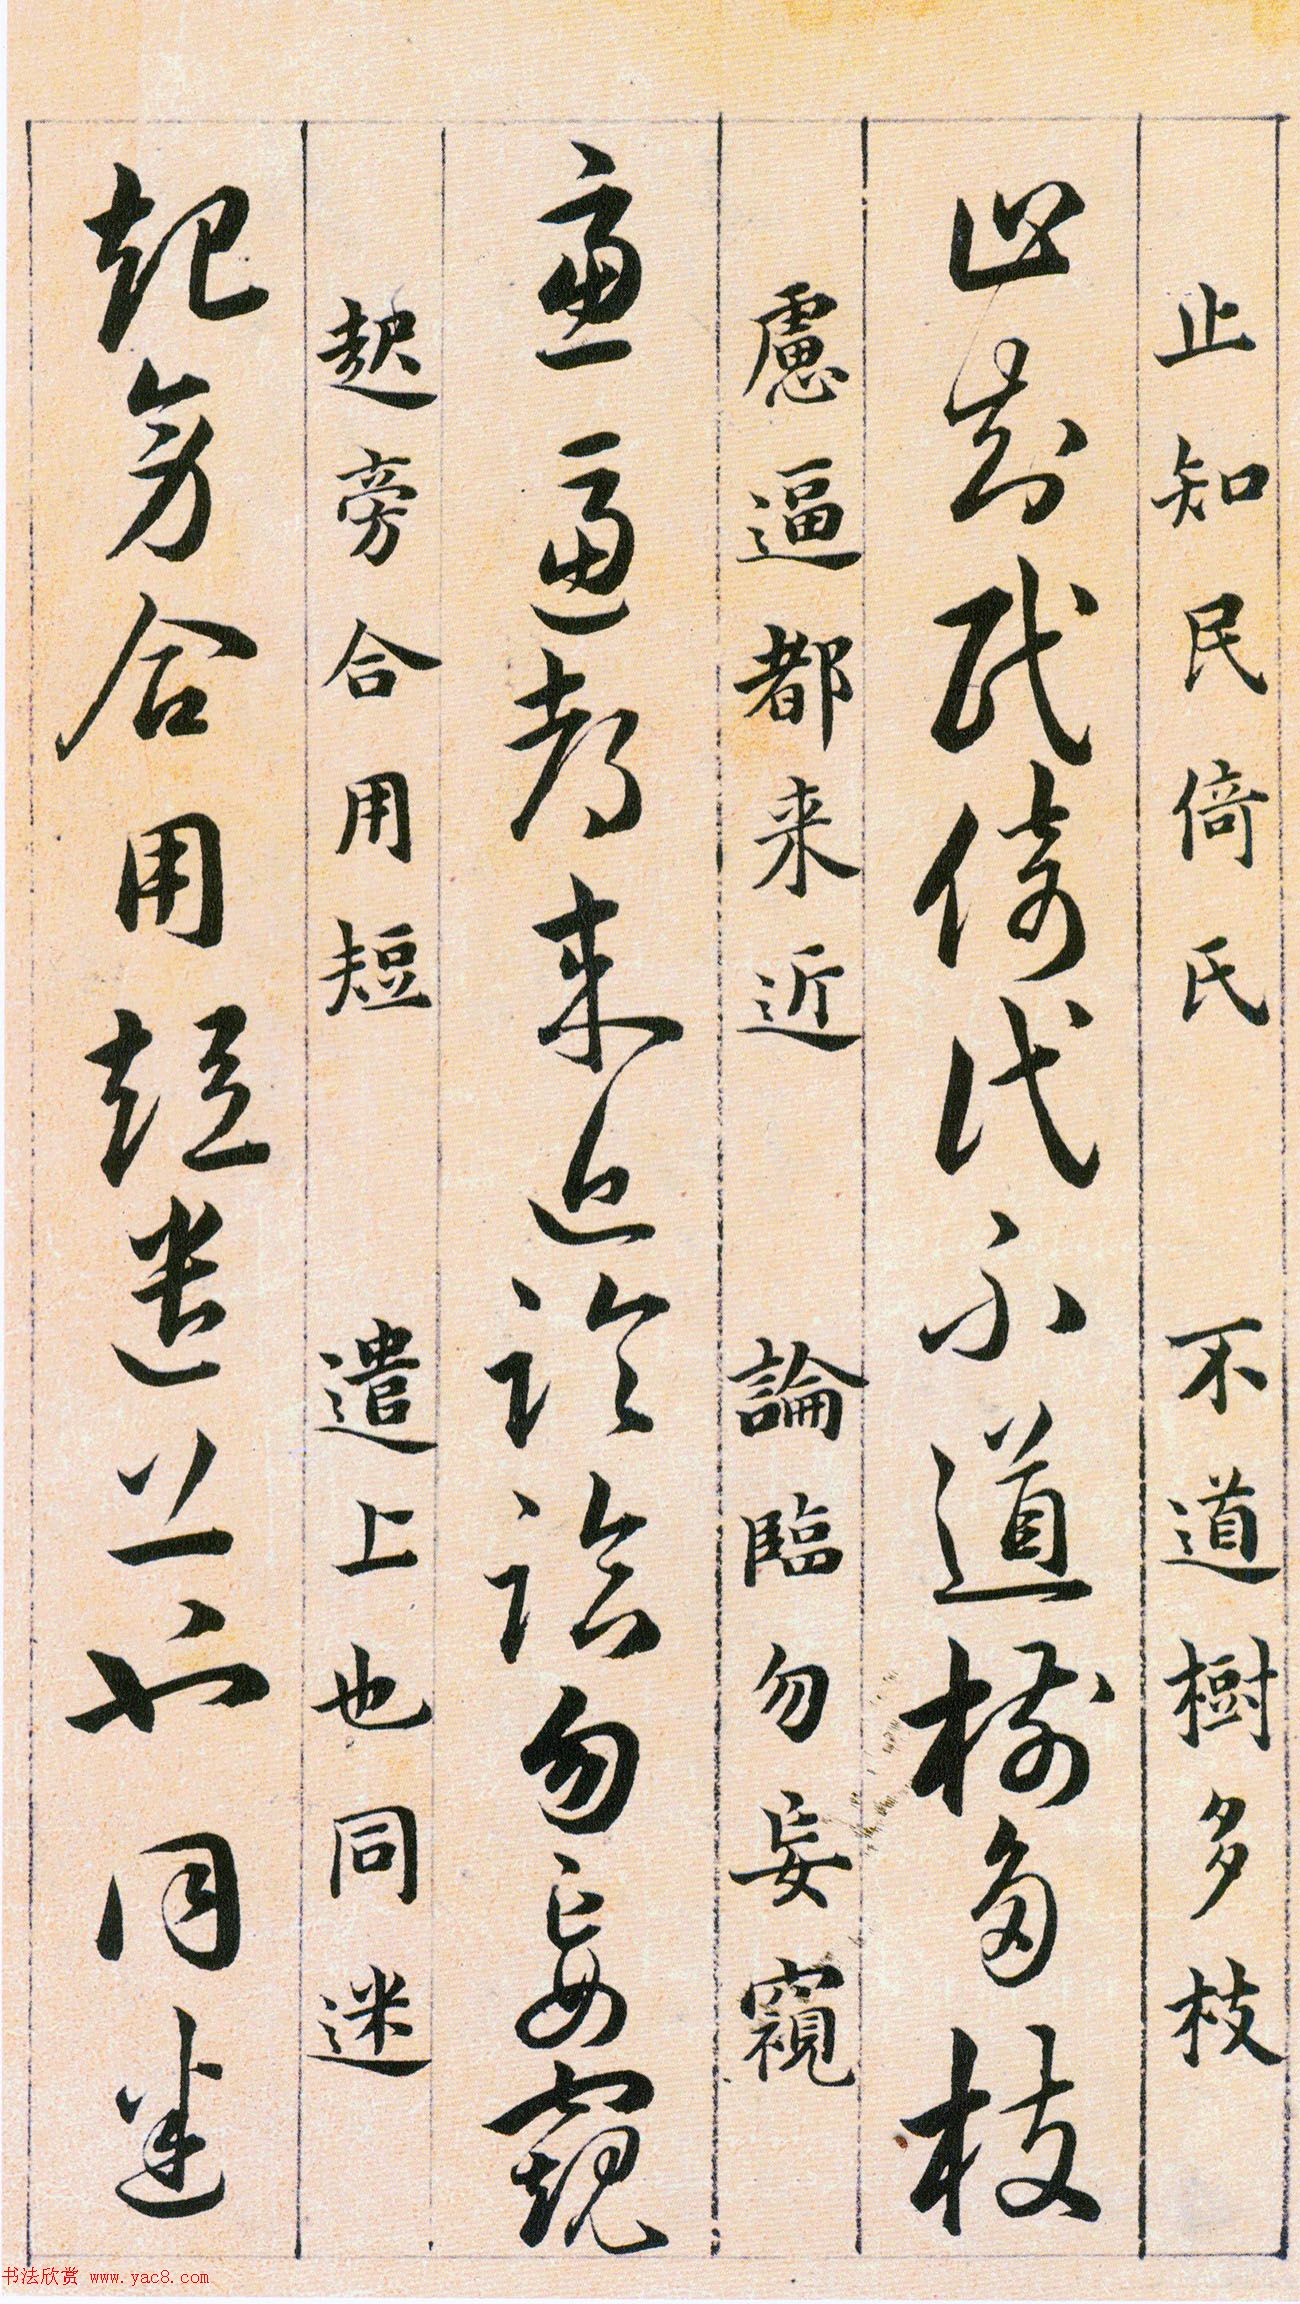 止知民倚氏 不道樹多枝
止知民倚氏不道樹多枝
慮逼都来近 論臨勿妄窺
慮逼都来近論臨勿妄窺
旁合用短 遣上也同迷
起旁合用短遣上也同迷
书法欣赏 www.yac8.com